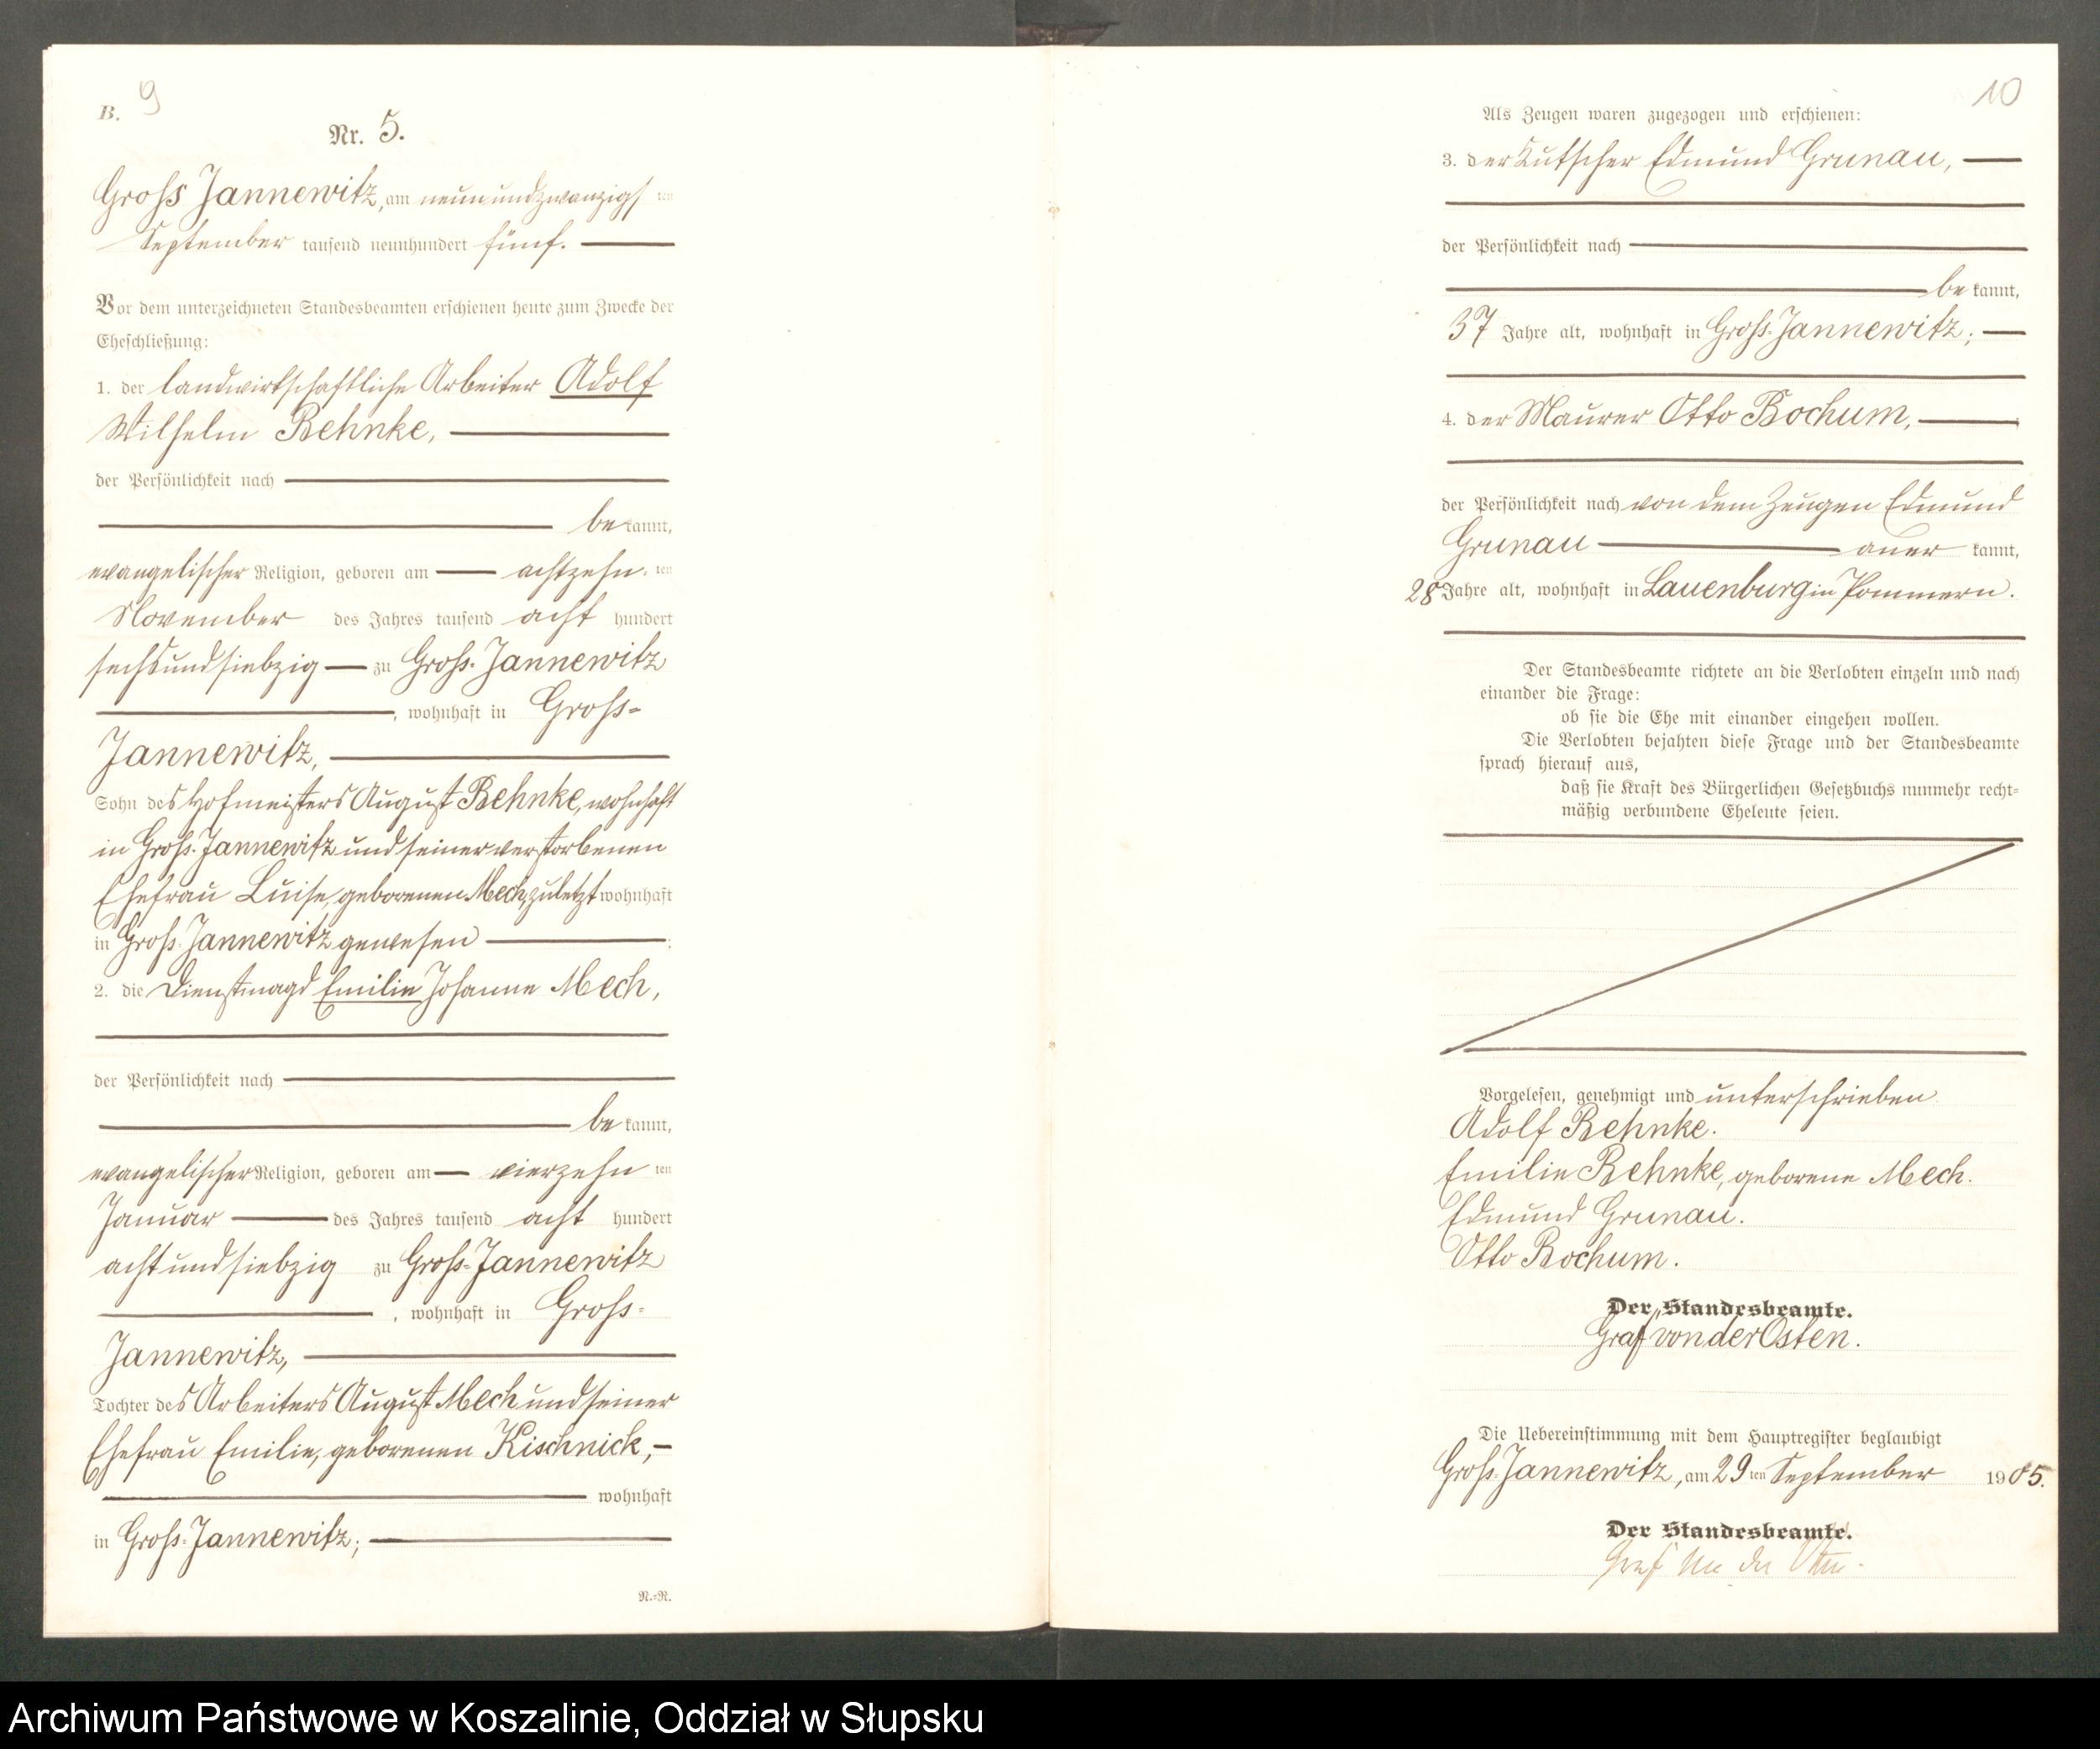 B. 9
Nr. 5.
Gross Jannewitz, am neunundzwanzigsten
September tausend neunhundert fünf.
Vor dem unterzeichneten Standesbeamten erschienen heute zum Zwecke der
Eheschließung:
1. der landwirtschaftliche Arbeiter Adolf
Wilhelm Behnke,
der Persönlichkeit nach
be kannt,
evangelischer Religion, geboren am achtzehn ten
November des Jahres tausend acht hundert
sechsundsiebzig zu Gross-Jannewitz
, wohnhaft in Gross-
Jannewitz,
Sohn des Hofmeisters August Behnke, wohnhaft
in Gross-Jannewitz und seiner verstorbenen
Ehefrau Luise, geborenen Mech, zuletzt wohnhaft
in Gross-Jannewitz gewesen ;
2. die Dienstmagd Emilie Johanne Mech,
der Persönlichkeit nach
be kannt,
evangelischer Religion, geboren am vierzehn ten
Januar des Jahres tausend acht hundert
achtundsiebzig zu Gross-Jannewitz
, wohnhaft in Gross-
Jannewitz,
Tochter des Arbeiters August Mech und seiner
Ehefrau Emilie, geborenen Kischnick,
wohnhaft
in Gross-Jannewitz;
N.-N.
10
Als Zeugen waren zugezogen und erschienen:
3. der Kutscher Edmund Grunau,
der Persönlichkeit nach
be kannt,
37 Jahre alt, wohnhaft in Gross-Jannewitz;
4. der Maurer Otto Bochum,
der Persönlichkeit nach von dem Zeugen Edmund
Grunau aner kannt,
28 Jahre alt, wohnhaft in Lauenburg in Pommern.
Der Standesbeamte richtete an die Verlobten einzeln und nach
einander die Frage:
ob sie die Ehe mit einander eingehen wollen.
Die Verlobten bejahten diese Frage und der Standesbeamte
sprach hierauf aus,
daß sie Kraft des Bürgerlichen Gesetzbuchs nunmehr recht-
mäßig verbundene Eheleute seien.
Vorgelesen, genehmigt und unterschrieben
Adolf Behnke.
Emilie Behnke, geborene Mech.
Edmund Grunau.
Otto Bochum.
Der Standesbeamte.
Graf von der Osten.
Die Uebereinstimmung mit dem Hauptregister beglaubigt
Gross-Jannewitz, am 29 ten September 1905.
Der Standesbeamte.
Graf von der Osten.
Archiwum Państwowe w Koszalinie, Oddział w Słupsku